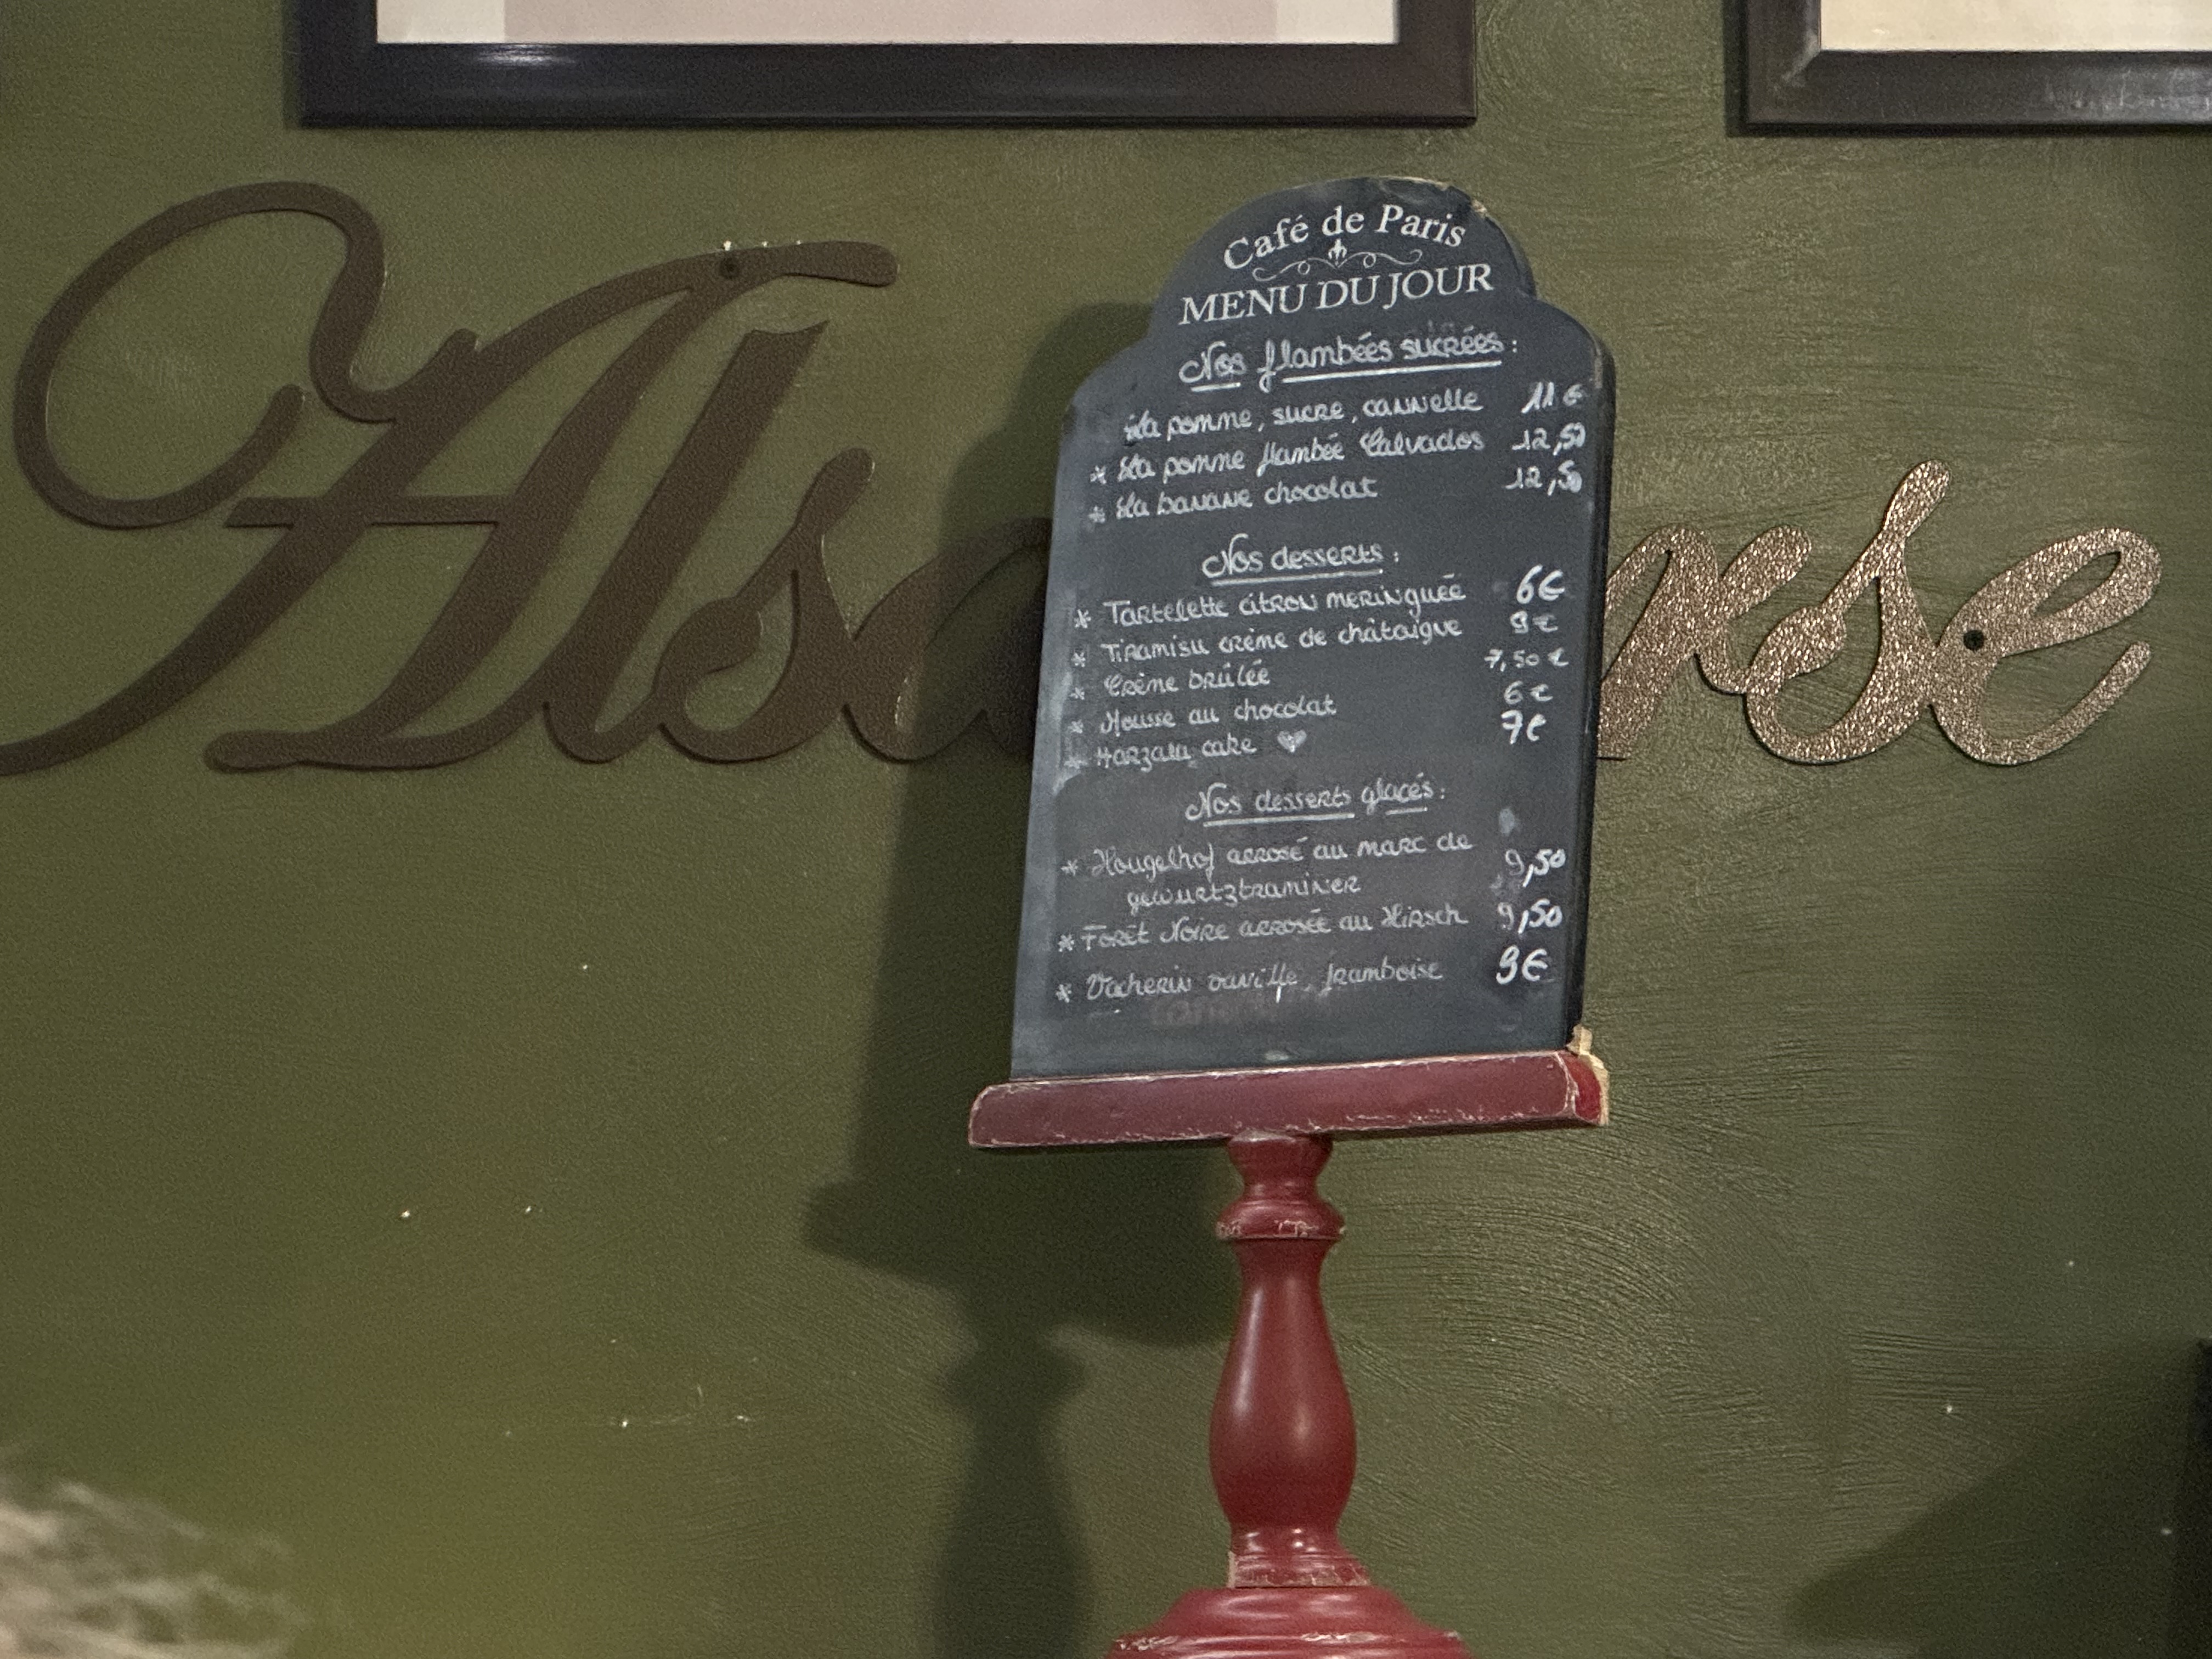 Café de Paris
MENU DU JOUR
Nos flambées sucrées :
La pomme, sucre, cannelle 11€
* La pomme flambée Calvados 12,50
* La banane chocolat 12,50
Nos desserts :
* Tartelette citron meringuée 6€
* Tiramisu crème de châtaigne 9€
* Crème brûlée 7,50€
* Mousse au chocolat 6€
* cake ♥ 7€
Nos desserts glacés :
* Kougelhof arrosé au marc de 9,50
gewurtztraminer
* Forêt Noire arrosée au Kirsch 9,50
* Vacherin vanille, framboise 9€
Alsa
rse